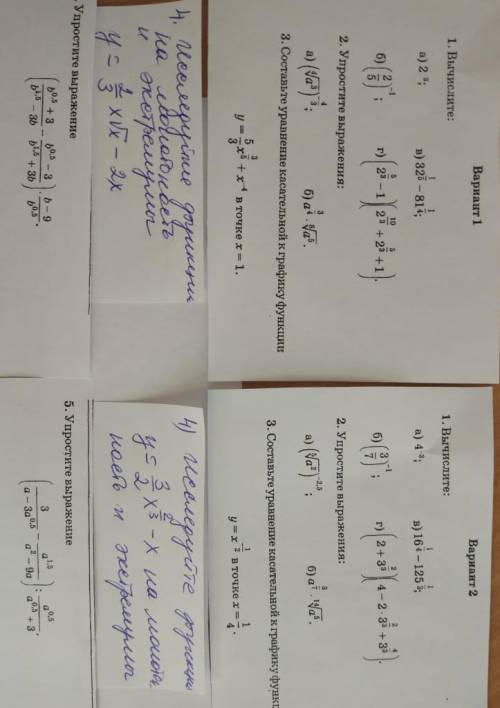 Вариант 1
1. Вычислите:
а) 2⁻³; в) 32^(1/5) − 81^(1/4);
б) (2/5)⁻¹; г) (2^(5/3) − 1)(2^(10/3) + 2^(5/3) + 1).
2. Упростите выражения:
б) a^(3/4) · ⁸√a⁵.
3. Составьте уравнение касательной к графику функции
в точке x = 1.
4. Исследуйте функции
на монотонность
и экстремумы
y = 2/3 x√x − 2x
Упростите выражение
((b^0,5 + 3)/(b^1,5 − 3b) − (b^0,5 − 3)/(b^1,5 + 3b)) · (b − 9)/b^0,5.
Вариант 2
1. Вычислите:
а) 4⁻³; в) 16^(1/4) − 125^(1/3);
б) (3/7)⁻¹; г) (2 + 3^(2/3))(4 − 2 · 3^(2/3) + 3^(4/3)).
2. Упростите выражения:
3. Составьте уравнение касательной к графику
y = x^(−1/2) в точке x = 1/4.
4) Исследуйте
y = 3/2 x^(2/3) − x на монотон
ность и экстремумы
5. Упростите выражение
(3/(a − 3a^0,5) − a^1,5/(a² − 9a)) : /(a^0,5 + 3).